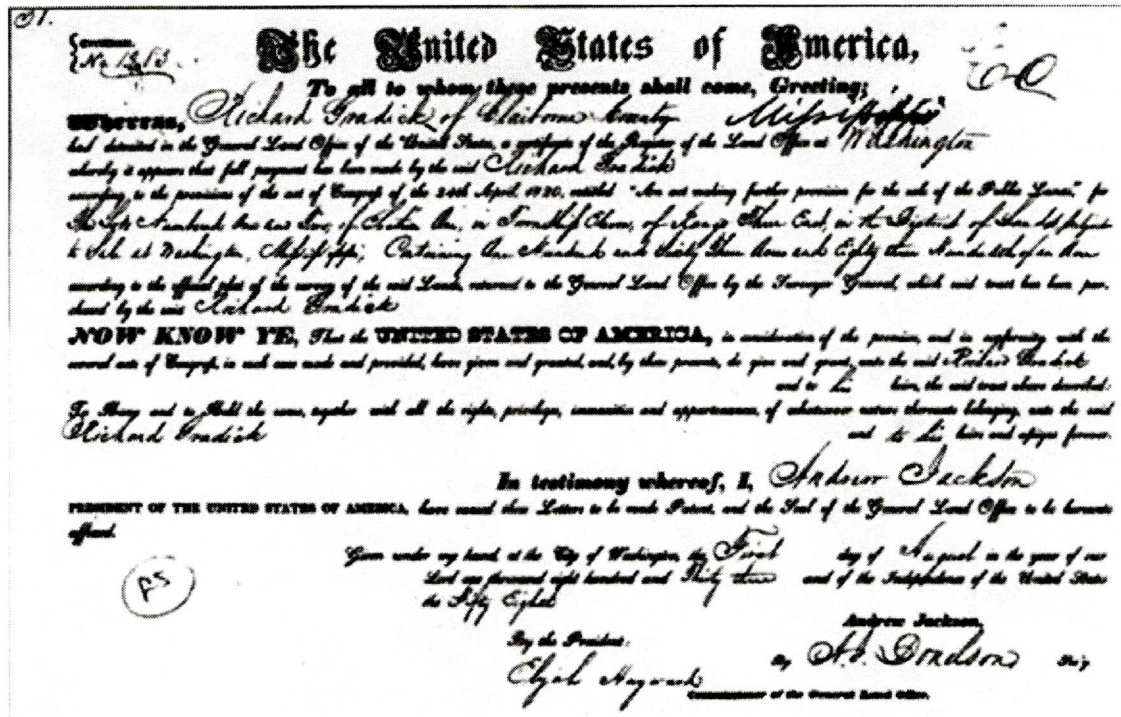 51.
No 1313.
The United States of America,
To all to whom these presents shall come, Greeting;
Whereas, Richard Gradick of Claiborne County Mississippi
had deposited in the General Land Office of the United States, a certificate of the Register of the Land Office at Washington
whereby it appears that full payment has been made by the said Richard Gradick
according to the provisions of the act of Congress of the 24th April, 1820, entitled "An act making further provision for the sale of the Public Lands," for
The Lots Numbered One and Two, of Section One, in Township Eleven, of Range Three East, in the District of Lands subject
to Sale at Washington, Mississippi, Containing One Hundred and Sixty Three Acres and Eighty three Hundredths of an Acre
according to the official plat of the survey of the said Lands, returned to the General Land Office by the Surveyor General, which said tract has been pur-
chased by the said Richard Gradick
NOW KNOW YE, That the UNITED STATES OF AMERICA, in consideration of the premises, and in conformity with the
several acts of Congress, in such case made and provided, have given and granted, and, by these presents, do give and grant, unto the said Richard Gradick
and to his heirs, the said tract above described:
To Have and to Hold the same, together with all the rights, privileges, immunities and appurtenances, of whatsoever nature thereunto belonging, unto the said
Richard Gradick and to his heirs and assigns forever.
In testimony whereof, I, Andrew Jackson
PRESIDENT OF THE UNITED STATES OF AMERICA, have caused these Letters to be made Patent, and the Seal of the General Land Office to be hereunto
affixed.
Given under my hand, at the City of Washington, the First day of August in the year of our
Lord one thousand eight hundred and Thirty three and of the Independence of the United States
the Fifty Eighth
Andrew Jackson.
By the President:
By A. J. Donelson Sec'y
Elijah Hayward
Commissioner of the General Land Office.